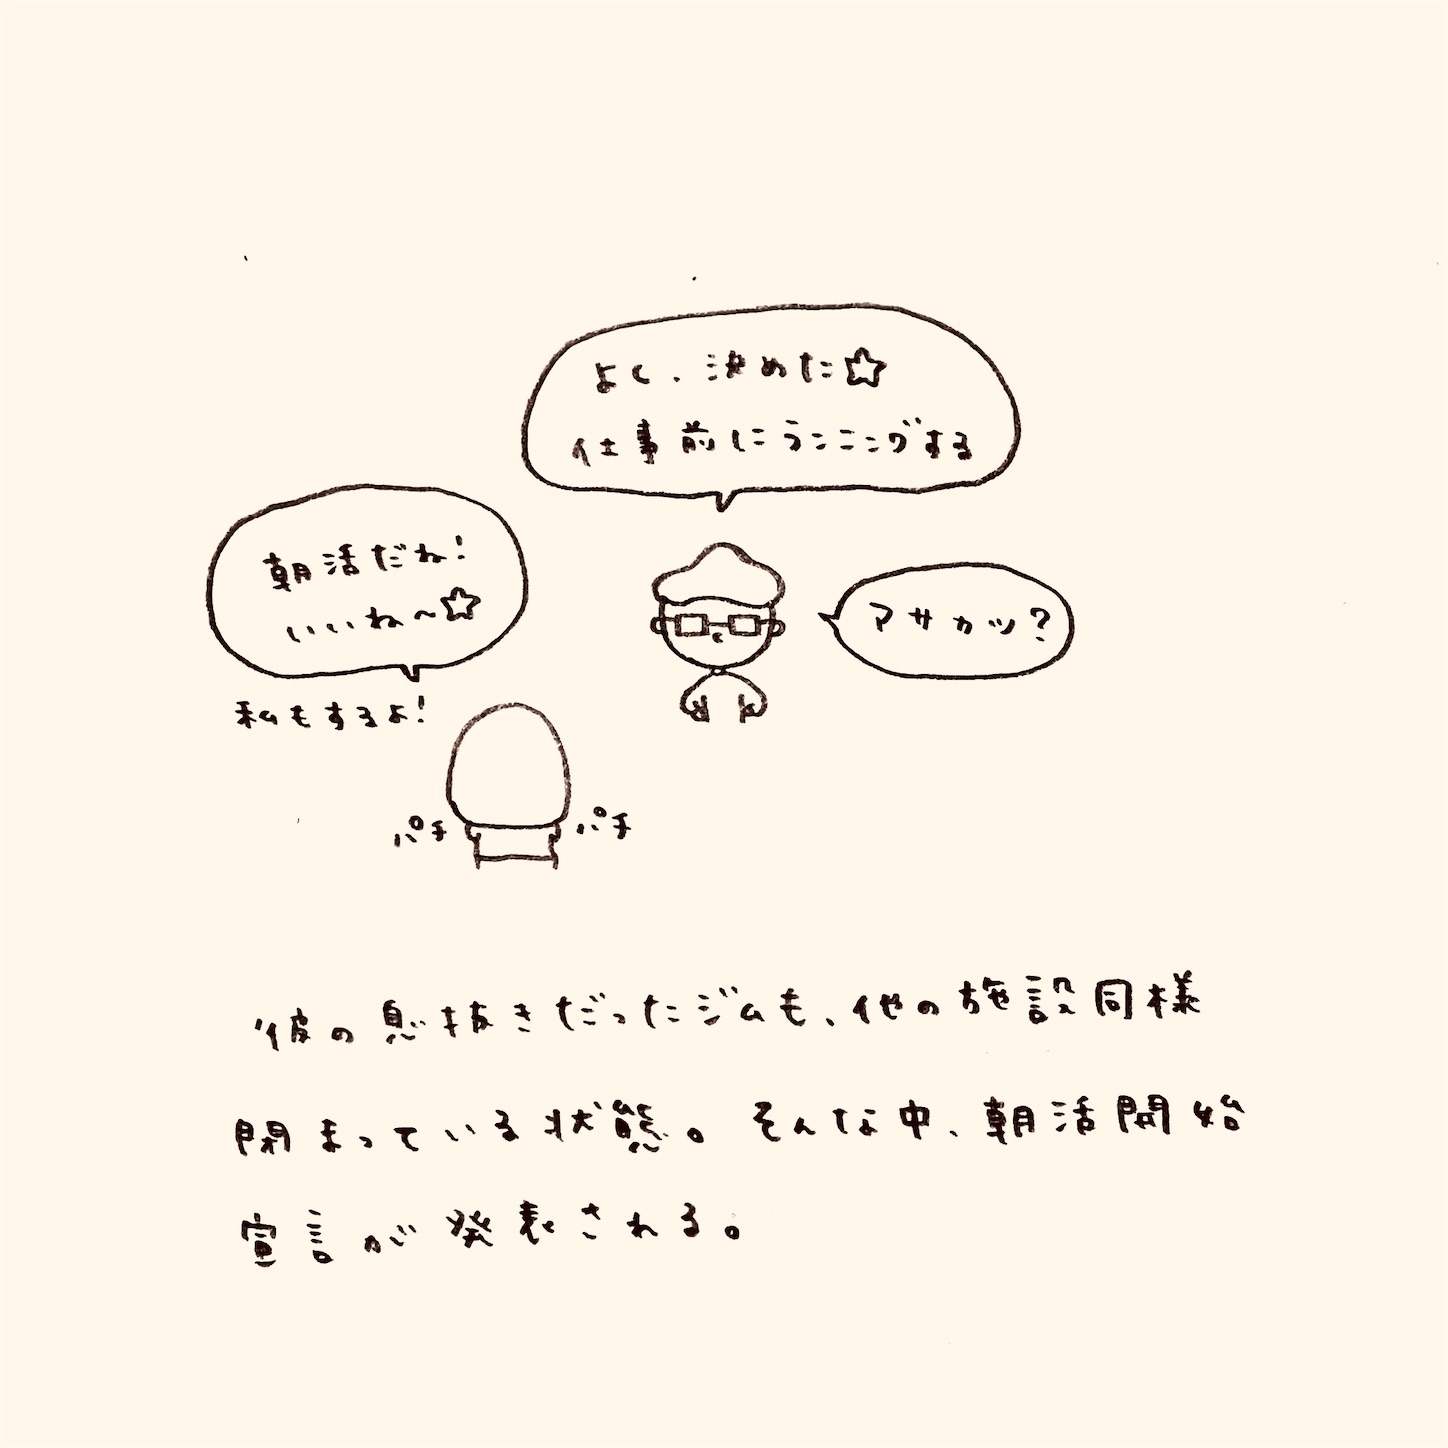 よし、決めた☆
仕事前にランニングする
朝活だね!
いいね〜☆
私もするよ!
アサカツ?
パチ
パチ
彼の息抜きだったジムも、他の施設同様
閉まっている状態。そんな中、朝活開始
宣言が発表される。